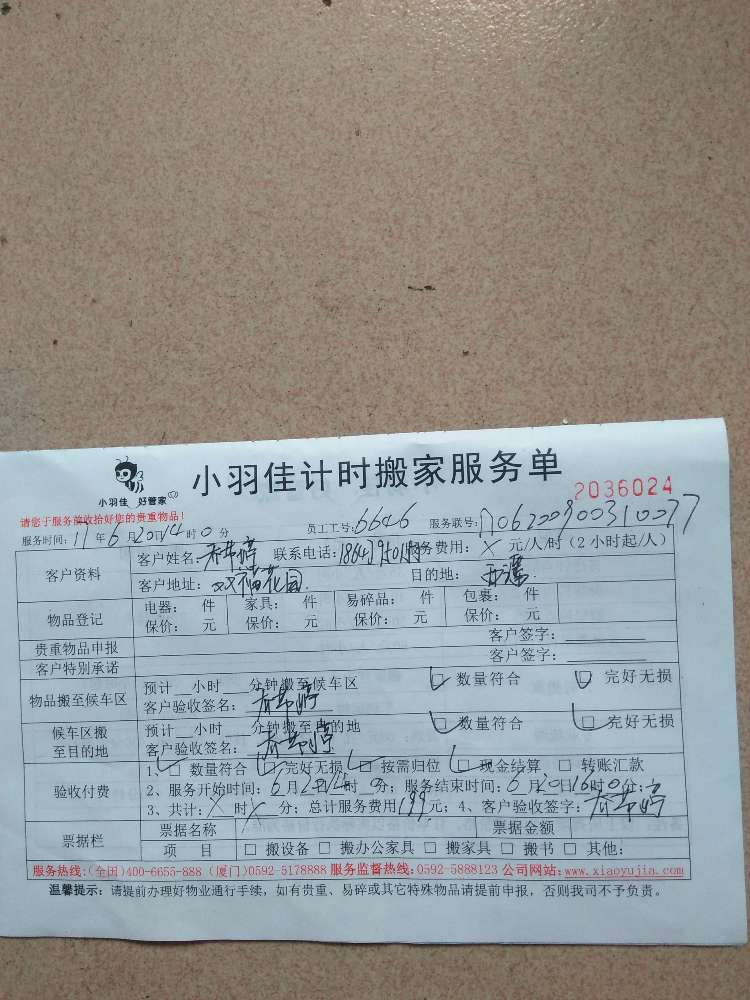 小羽佳 好管家
小羽佳计时搬家服务单
2036024
请您于服务前收拾好您的贵重物品!
服务时间: 17年6月20日14时0分 员工工号: 6646 服务联号:
客户资料 客户姓名: 联系电话: 服务费用: X 元/人/时(2小时起/人)
客户地址: 双福花园 目的地:
物品登记 电器: 件 家具: 件 易碎品: 件 包裹: 件
保价: 元 保价: 元 保价: 元 保价: 元
贵重物品申报 客户签字:
客户特别承诺 客户签字:
物品搬至候车区 预计__小时___分钟搬至候车区 □ 数量符合 □ 完好无损
客户验收签名:
候车区搬至目的地 预计__小时___分钟搬至目的地 □ 数量符合 □ 完好无损
客户验收签名:
验收付费 1、□ 数量符合 □ 完好无损 □ 按需归位 □ 现金结算 □ 转账汇款
2、服务开始时间: 6月20日14时0分; 服务结束时间: 6月20日16时0分;
3、共计: X 时 X 分; 总计服务费用199元; 4、客户验收签字:
票据栏 票据名称 票据金额
项 目 □ 搬设备 □ 搬办公家具 □ 搬家具 □ 搬书 □ 其他:
服务热线:(全国)400-6655-888 (厦门)0592-5178888 服务监督热线:0592-5888123 公司网站:www.xiaoyujia.com
温馨提示: 请提前办理好物业通行手续,如有贵重、易碎或其它特殊物品请提前申报,否则我司不予负责。